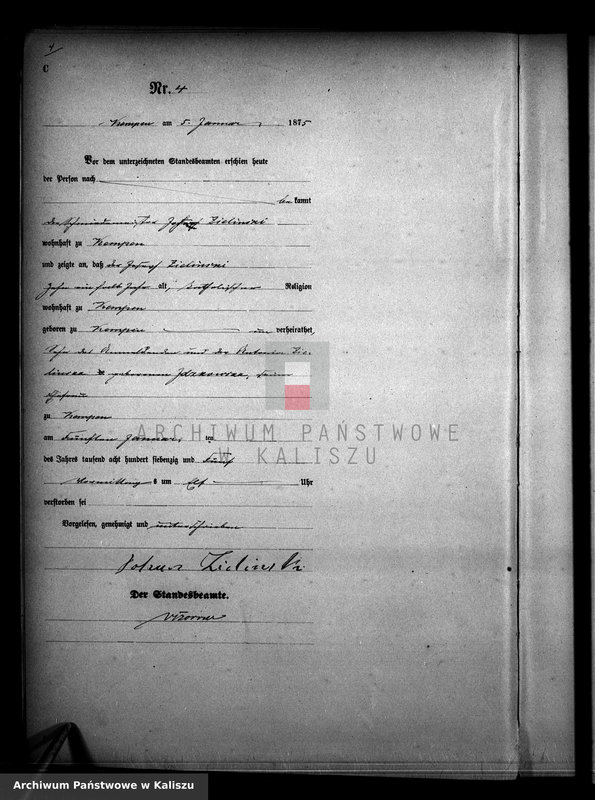 4
C
Nr. 4
Kempen am 5. Januar 1875
Vor dem unterzeichneten Standesbeamten erschien heute
der Person nach
bekannt
der Schmiedemeister Zielinski
wohnhaft zu Kempen
und zeigte an, daß der Joseph Zielinski
Jahr alt, katholischer Religion
wohnhaft zu Kempen
geboren zu Kempen un verheirathet,
Sohn des Anmeldenden und der Antonia Zie-
linska geborenen seiner
Ehefrau
zu Kempen
am Fünften Januar ten
des Jahres tausend acht hundert siebenzig und Fünf
Vormittags um Elf Uhr
verstorben sei
Vorgelesen, genehmigt und unterschrieben
Zielinski
Der Standesbeamte.
ARCHIWUM PAŃSTWOWE
W KALISZU
Archiwum Państwowe w Kaliszu